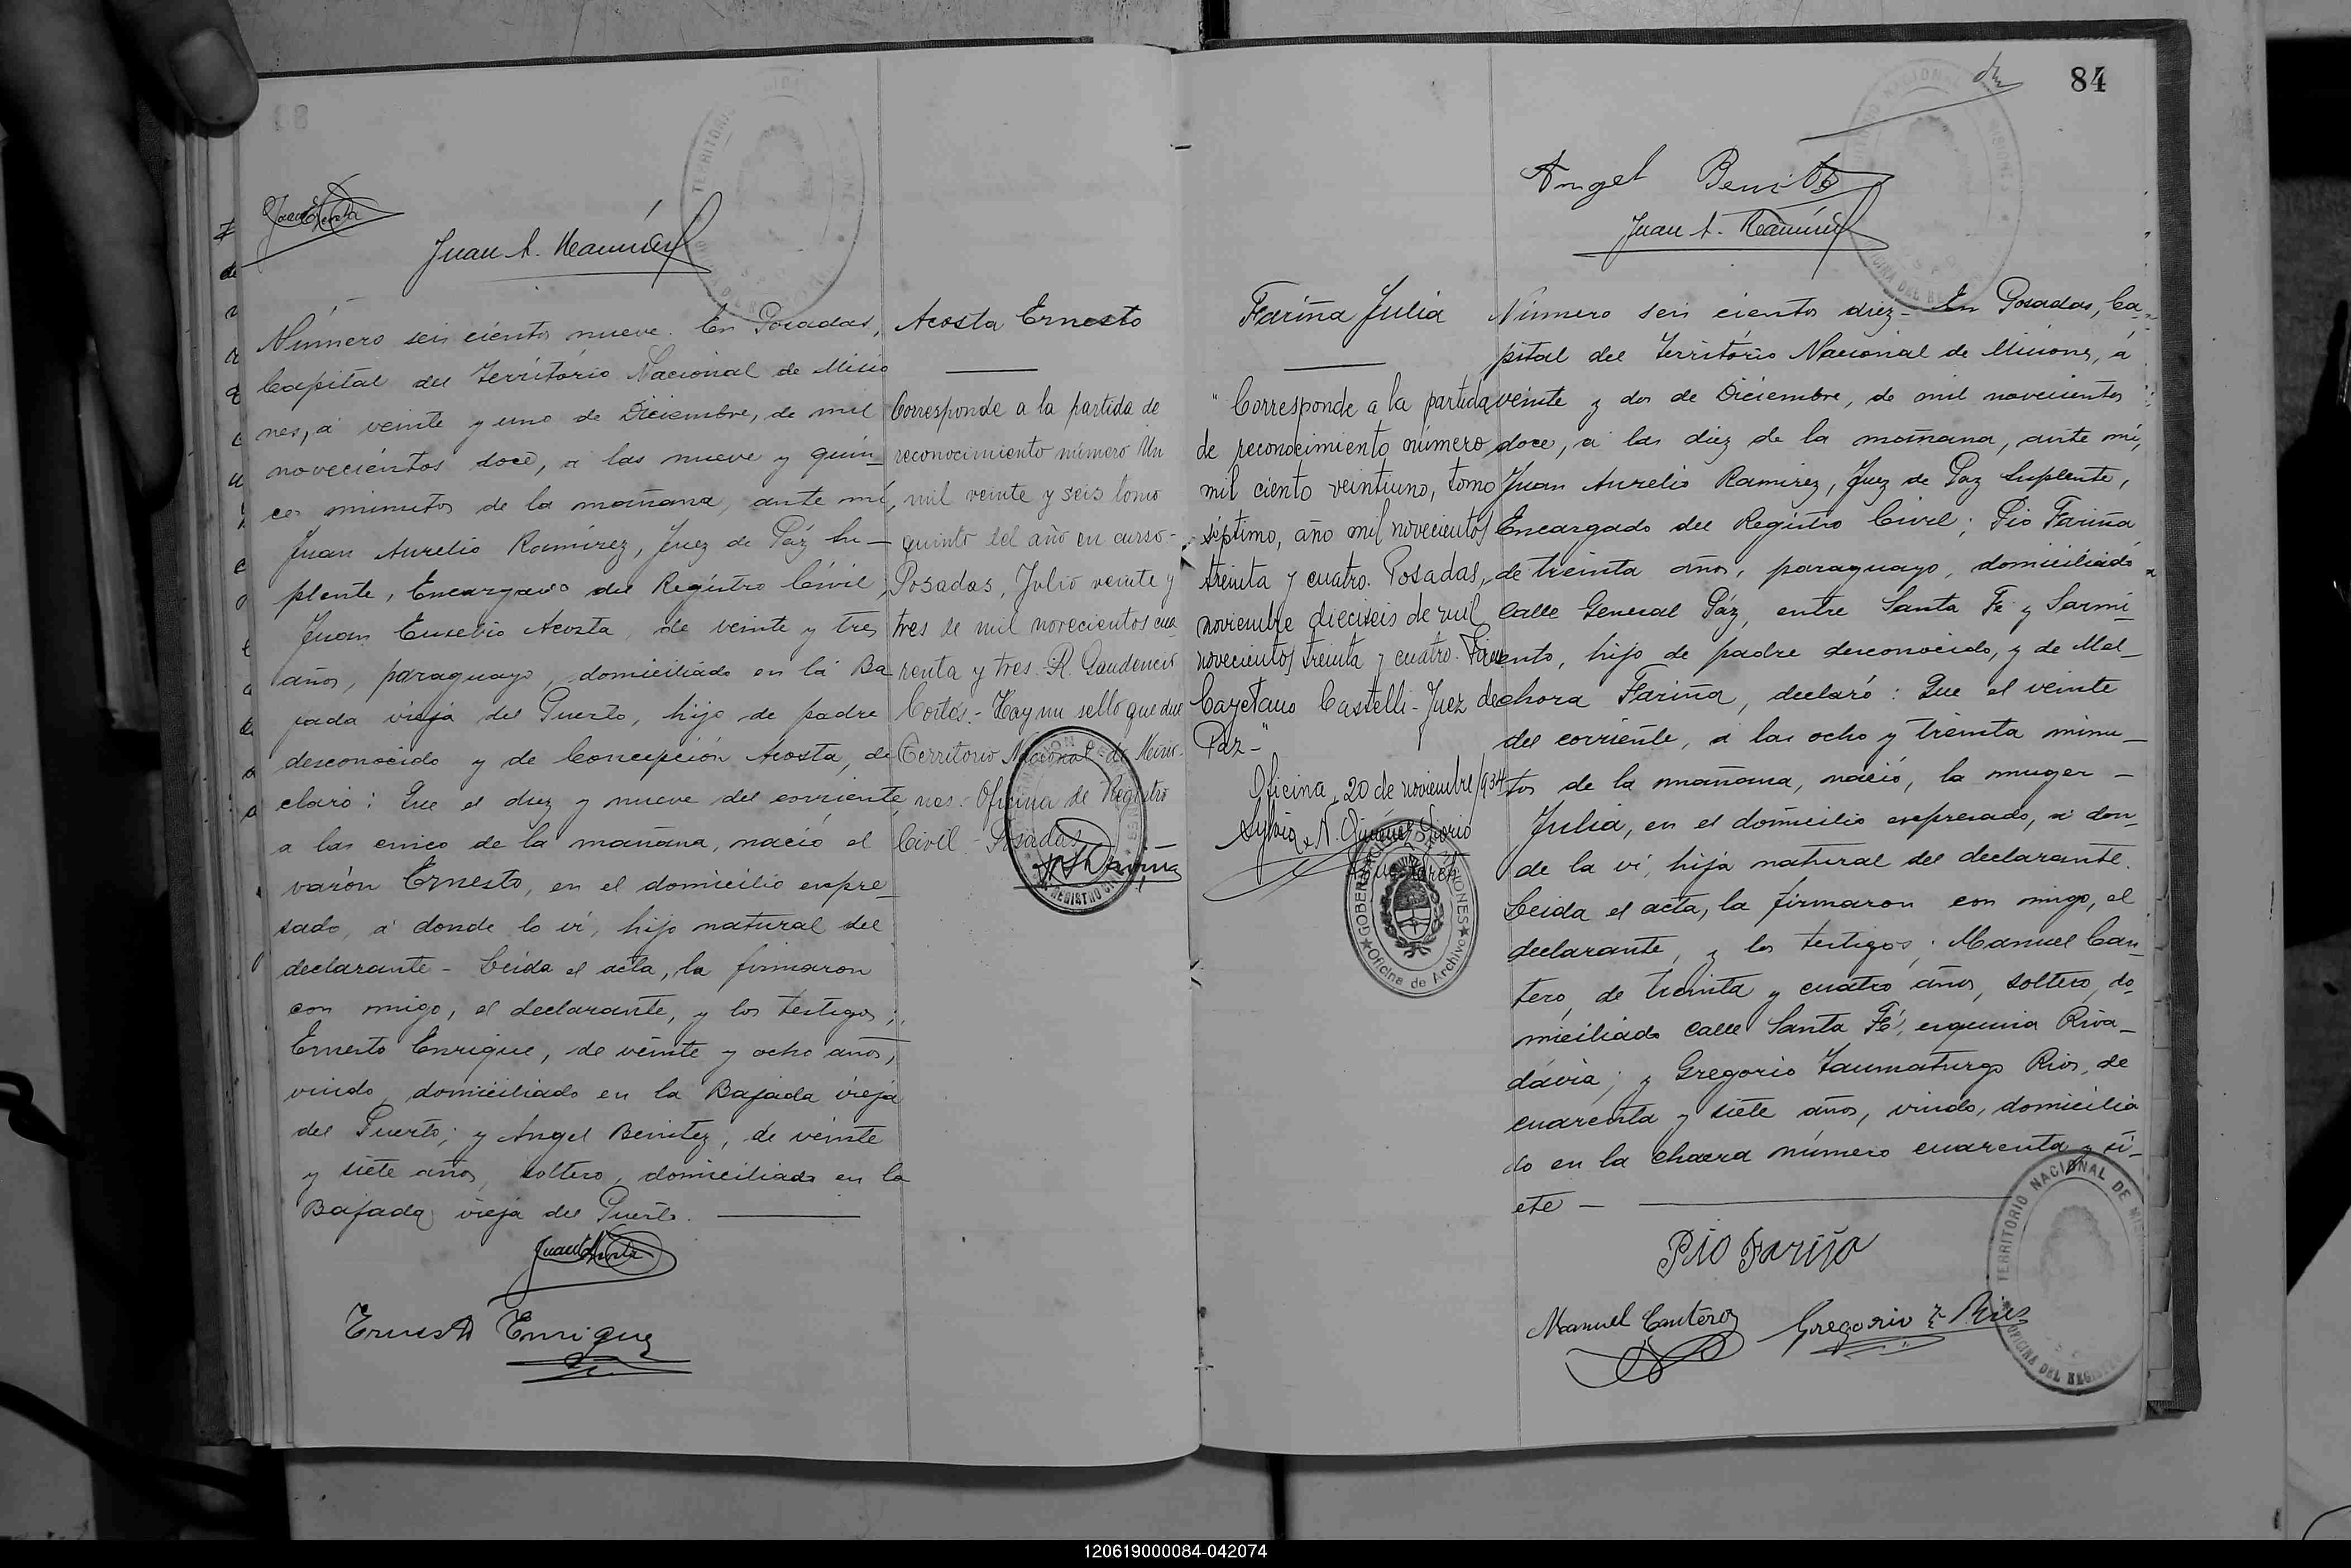 Juan E Acosta
Juan A. Ramírez
Número seis cientos nueve. En Posadas,
Capital del Território Nacional de Misio
nes, á veinte y uno de Diciembre, de mil
novecientos doce, a las nueve y quin-
ces minutos de la mañana, ante mí,
Juan Aurelio Ramirez, Juez de Páz Su-
plente, Encargado del Registro Civil,
Juan Eusebio Acosta, de veinte y tres
años, paraguayo, domiciliado en la Ba
jada vieja del Puerto, hijo de padre
desconocido y de Concepción Acosta, de
claró: Que el diez y nueve del corriente,
a las cinco de la mañana, nació el
varón Ernesto, en el domicilio expre-
sado, á donde lo ví, hijo natural del
declarante - Leida el acta, la firmaron
con migo, el declarante, y los testigos;
Ernesto Enrique, de veinte y ocho años,
viudo, domiciliado en la Bajada vieja
del Puerto; y Angel Benitez, de veinte
y siete años, soltero, domiciliado en la
Bajada vieja del Puerto.
Juan E Acosta
Ernesto Enrique
Acosta Ernesto
Corresponde a la partida de
reconocimiento número Un
mil veinte y seis tomo
quinto del año en curso -
Posadas, Julio veinte y
tres de mil novecientos cua
renta y tres. R. Gaudencio
Cortés. - Hay un sello que dice
Territorio Nacional de Misio-
nes. - Oficina de Registro
Civil - Posadas
84
Angel Benitez
Juan A. Ramírez
Fariña Julia
"Corresponde a la partida
de reconocimiento número
mil ciento veintiuno, tomo
séptimo, año mil novecientos
treinta y cuatro. Posadas,
noviembre dieciseis de mil
novecientos treinta y cuatro. Firma
Cayetano Castelli - Juez de
Paz -"
Oficina, 20 de noviembre/934
GOBERNACION MISIONES
Oficina de Archivo
Número seis cientos diez - En Posadas, Ca-
pital del Território Nacional de Misiones, á
veinte y dos de Diciembre, de mil novecientos
doce, a las diez de la mañana, ante mí,
Juan Aurelio Ramirez, Juez de Paz Suplente,
Encargado del Registro Civil; Pio Fariña
de treinta años, paraguayo, domiciliado
Calle General Páz, entre Santa Fe y Sarmi-
ento, hijo de padre desconocido, y de Mel-
chora Fariña, declaró: Que el veinte
del corriente, á las ocho y treinta minu-
tos de la mañana, nació, la muger -
Julia, en el domicilio expresado, a don-
de la ví, hija natural del declarante.
Leida el acta, la firmaron con migo, el
declarante, y los testigos; Manuel Can-
tero, de treinta y cuatro años, soltero, do-
miciliado calle Santa Fé, esquina Riva-
dávia; y Gregorio Taumaturgo Rios, de
cuarenta y siete años, viudo, domicilia
do en la chacra número cuarenta y si-
ete -
Pio Fariña
Manuel Cantero
Gregorio T. Rios
TERRITORIO NACIONAL DE MI
OFICINA DEL REGIS
120619000084-042074